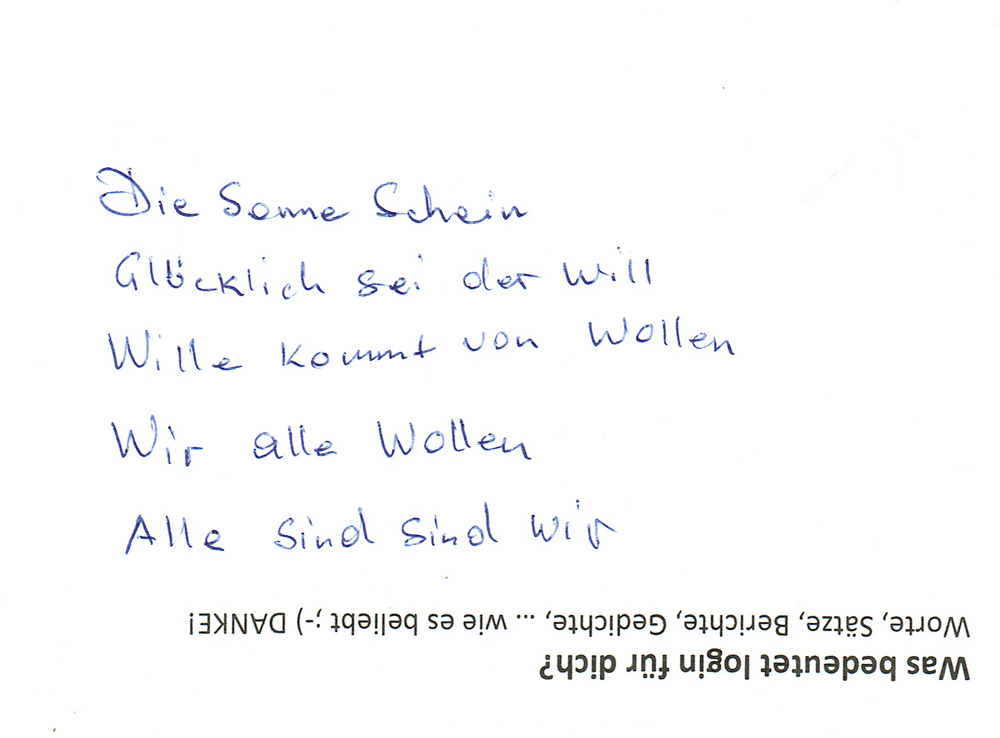 Die Sonne Schein
Glücklich sei der Will
Wille kommt von Wollen
Wir alle Wollen
Alle sind sind wir
Was bedeutet login für dich?
Worte, Sätze, Berichte, Gedichte, ... wie es beliebt ;-) DANKE!